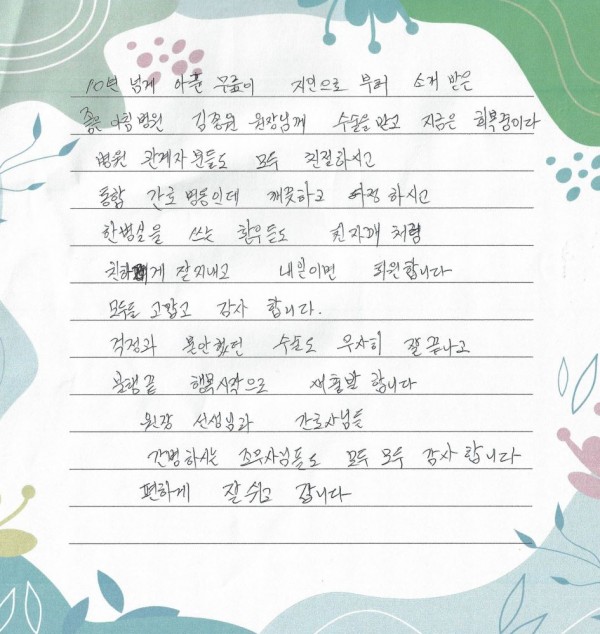 10년 넘게 아픈 무릎이 지인으로 부터 소개 받은
좋은 아침병원 김종원 원장님께 수술을 받고 지금은 회복중이다
병원 관계자 분들도 모두 친절하시고
통합 간호 병동인데 깨끗하고 하시고
한병실을 쓰는 환우들도 친자매 처럼
친하게 잘지내고 내일이면 퇴원합니다
모두들 고맙고 감사 합니다.
걱정과 불안했던 수술도 무사히 잘 끝나고
불행끝 행복시작으로 새출발 합니다
원장 선생님과 간호사님들
간병하시는 조무사님들도 모두 모두 감사 합니다
편하게 잘 쉬고 갑니다